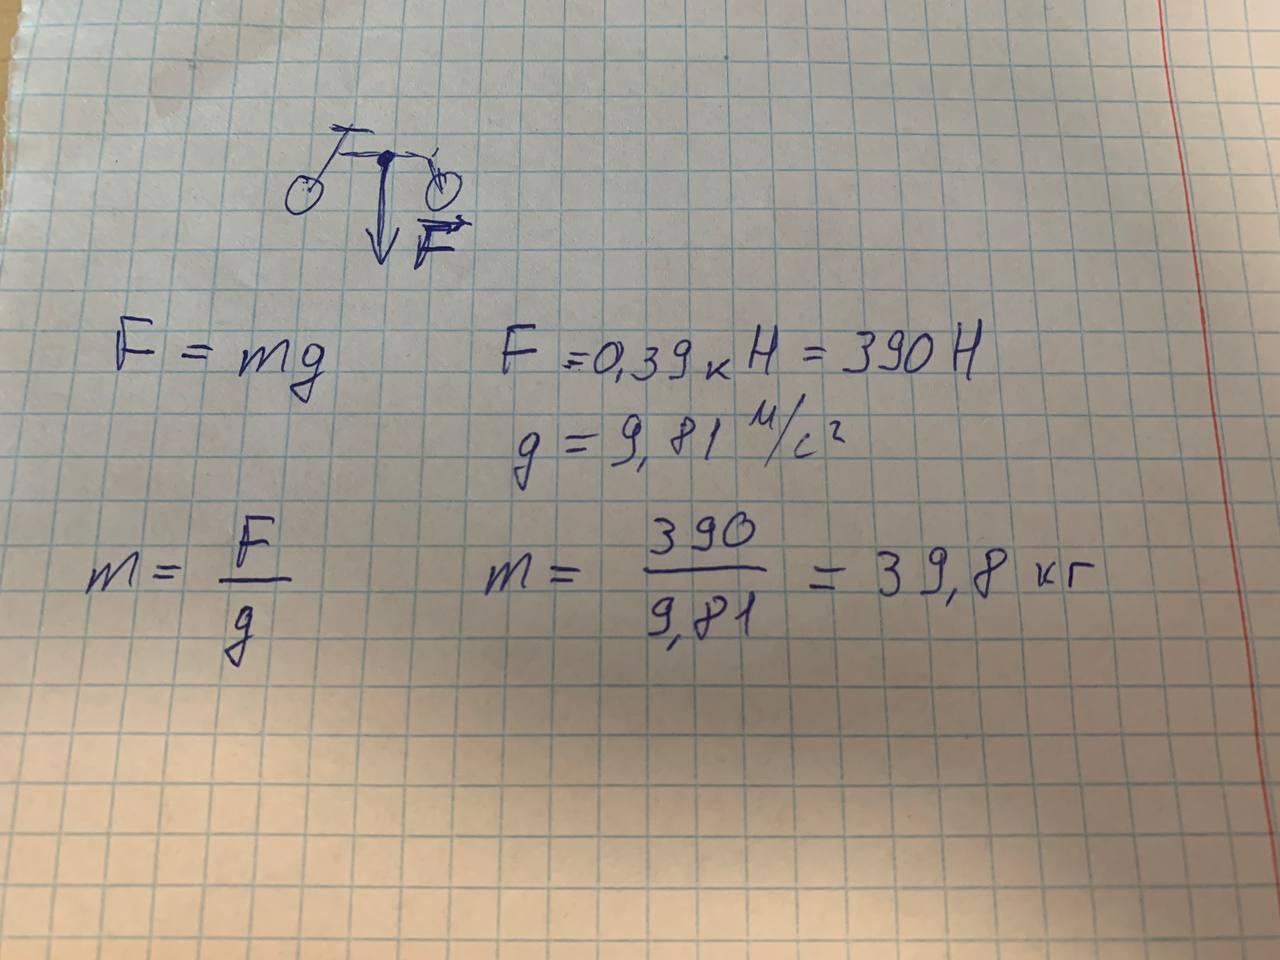 F
F = mg F = 0,39 кН = 390 Н
g = 9,81 м/с²
m = F/g m = 390/9,81 = 39,8 кг